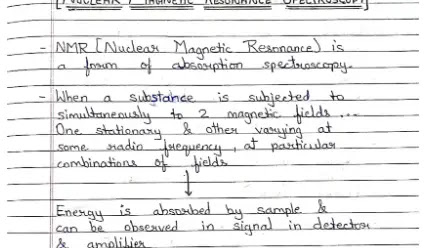 [NUCLEAR MAGNETIC RESONANCE SPECTROSCOPY]
- NMR [Nuclear Magnetic Resonnance) is
a form of absorption spectroscopy.
- When a substance is subjected to
simultaneously to 2 magnetic fields ...
One stationary & other varying at
some radio frequency, at particular
combinations of fields
↓
Energy is absorbed by sample &
can be observed in signal in detector
& amplifier